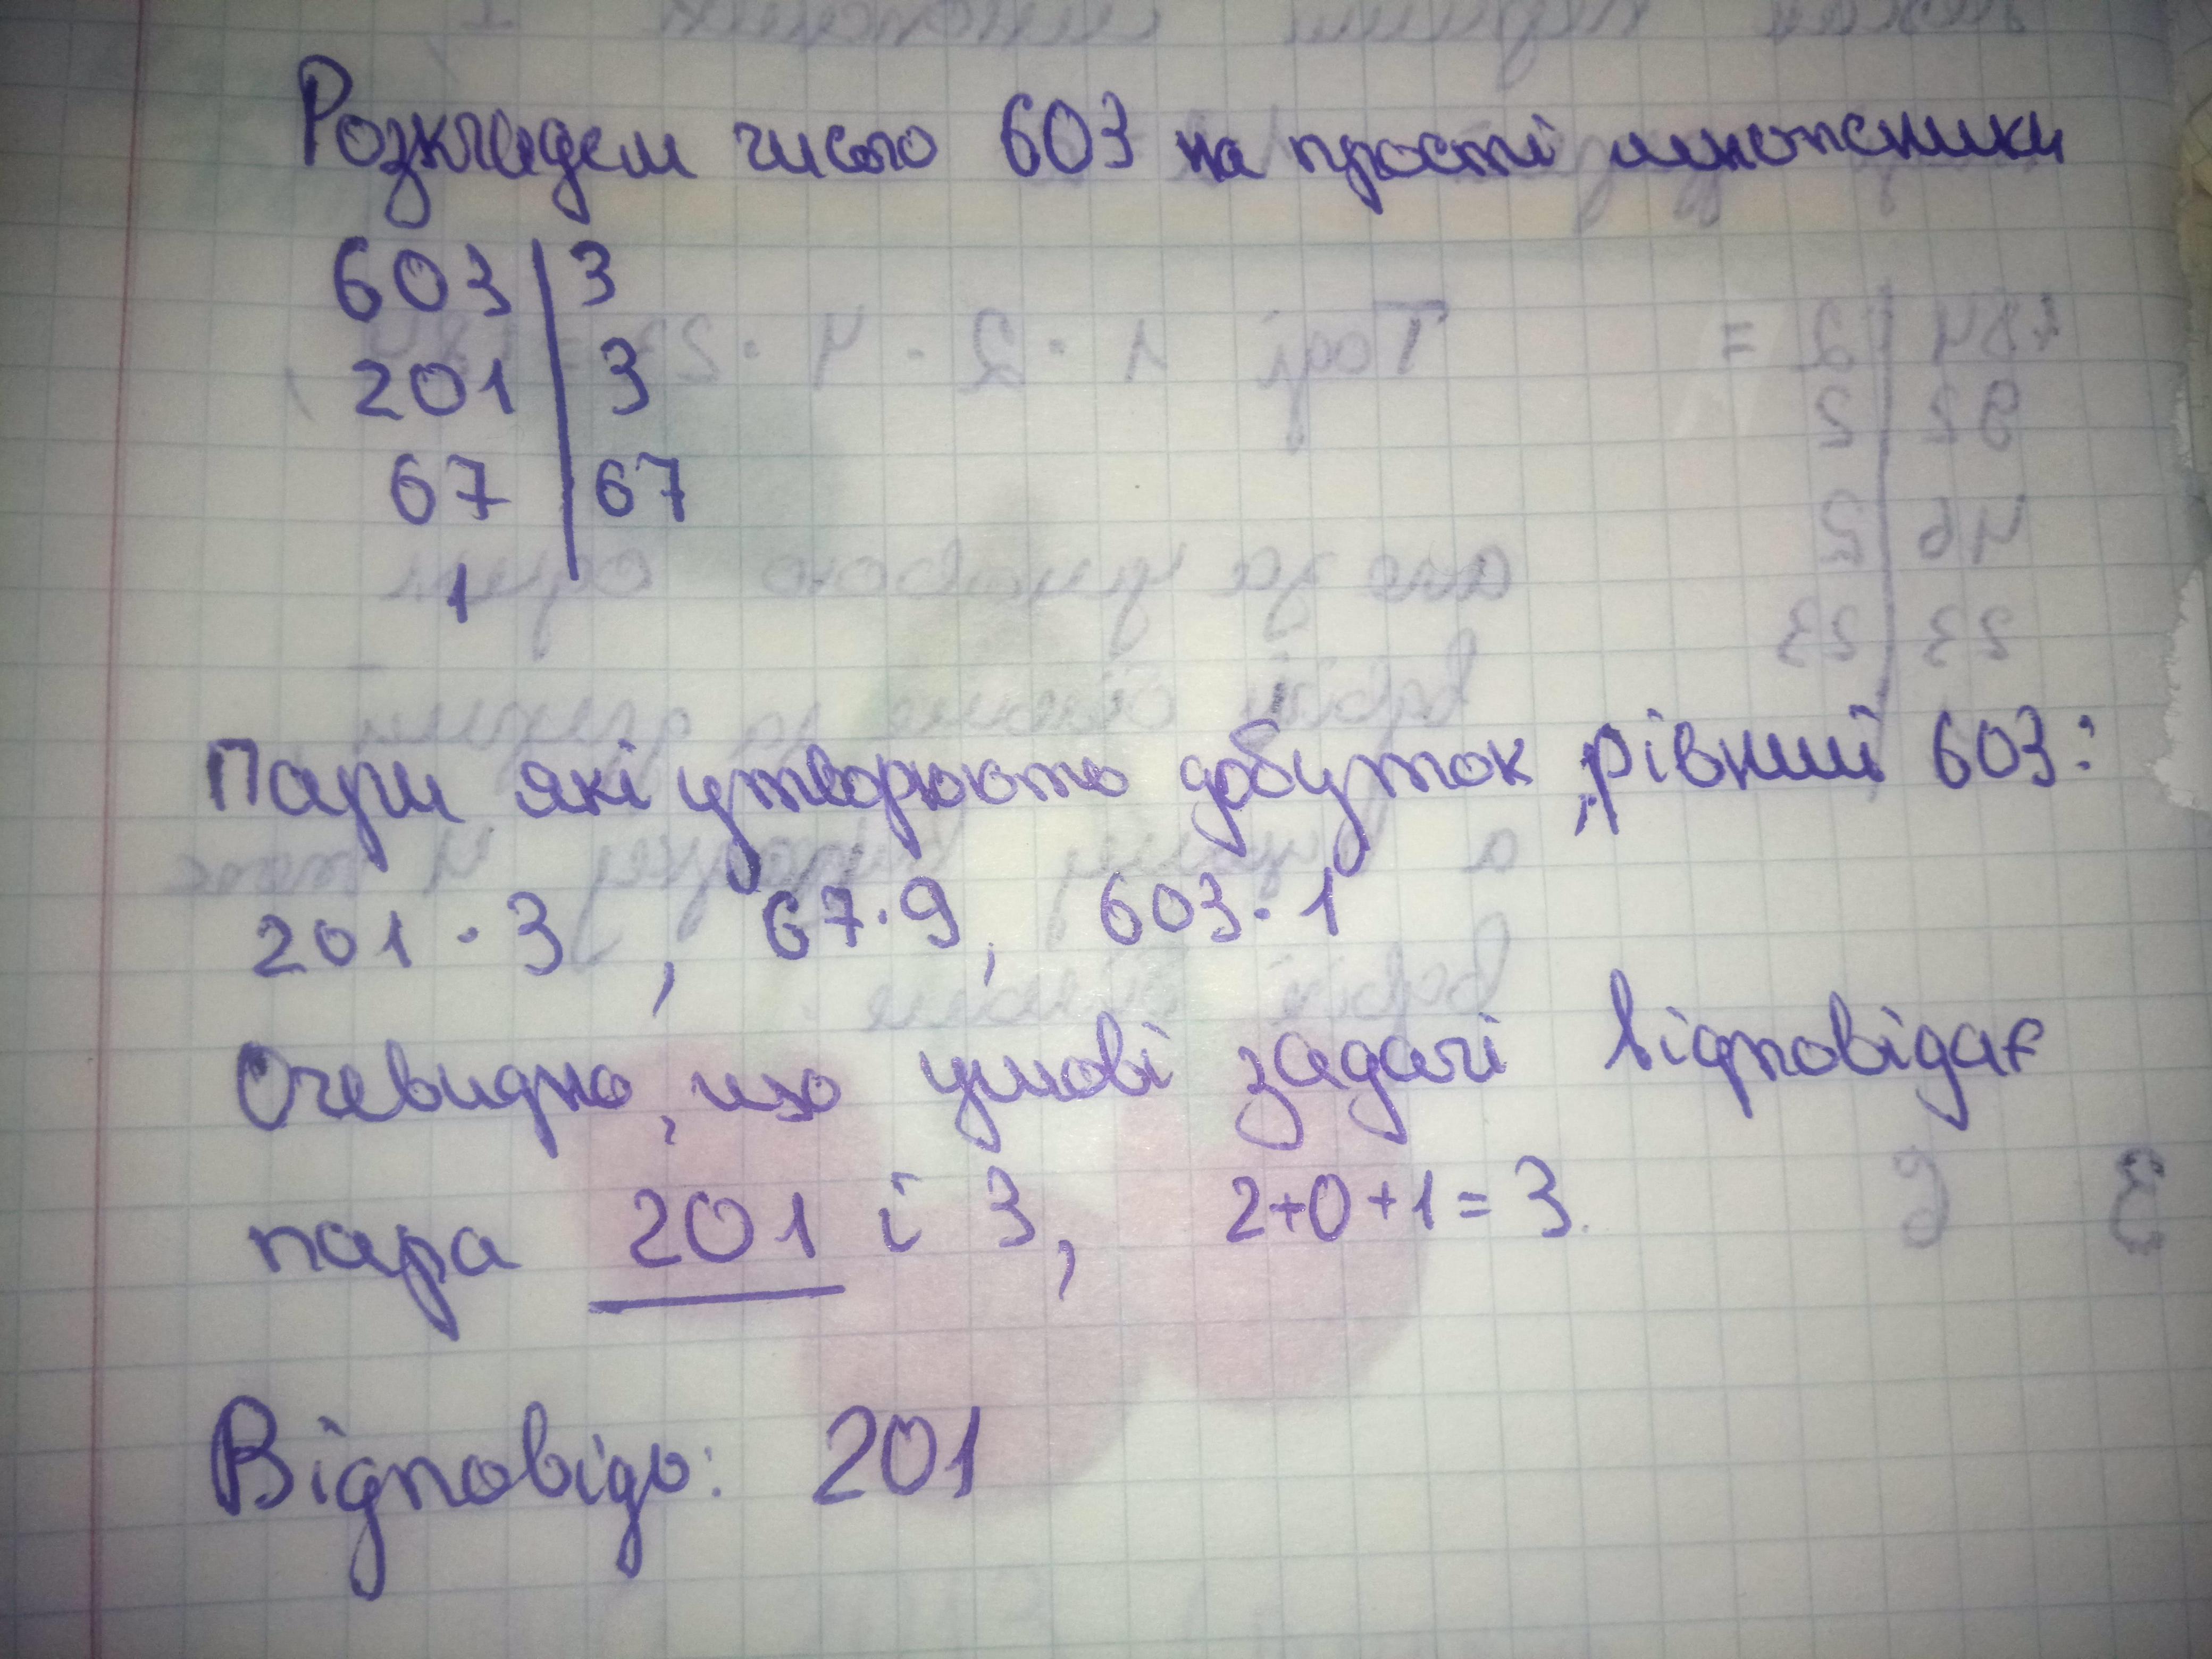 Розкладем число 603 на прості множники
603 | 3
201 | 3
67 | 67
1
Пари які утворюють добуток, рівний 603:
201 · 3, 67 · 9, 603 · 1
Очевидно, що умові задачі відповідає
пара 201 і 3, 2+0+1=3.
Відповідь: 201